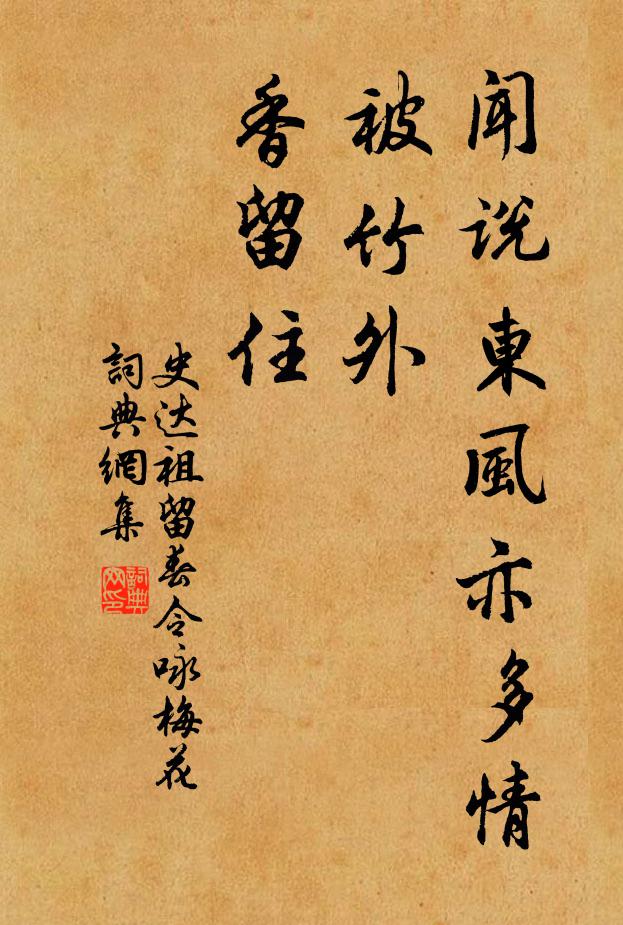 聞説東風亦多情
被竹外
香留住
史达祖留春令咏梅花
詞典網集
詞典网印